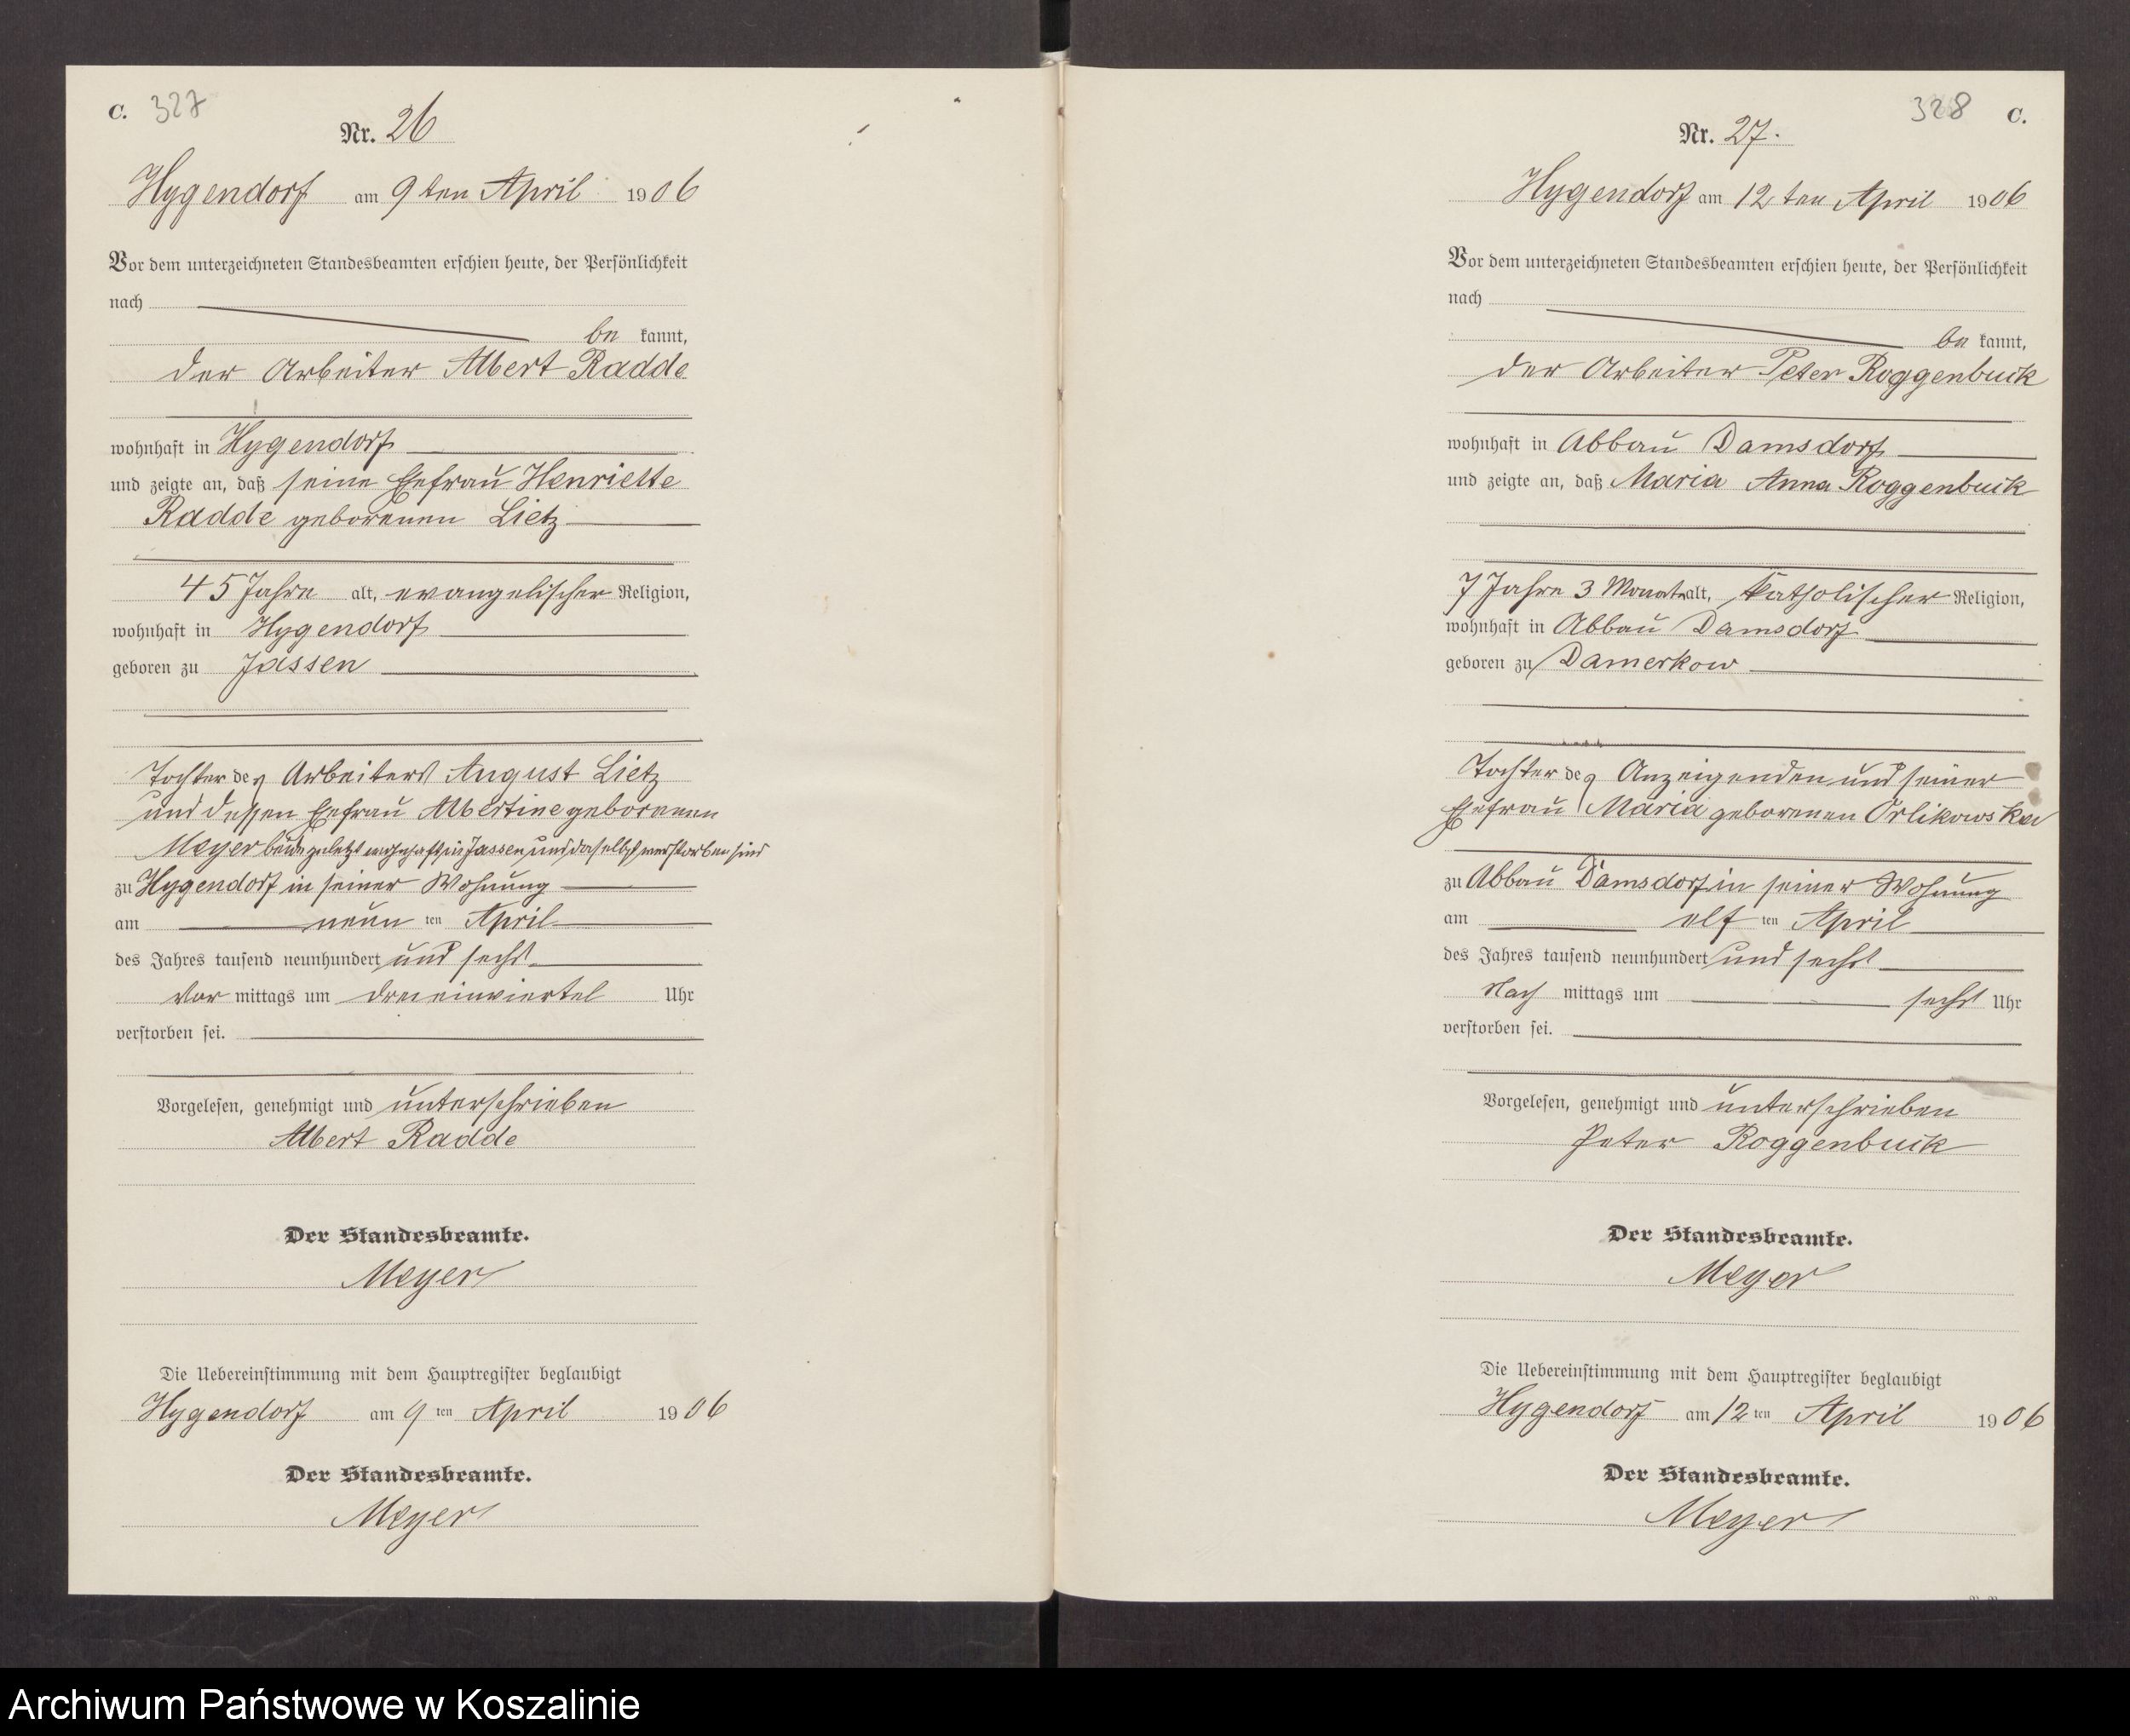 C. 327
Nr. 26
Hygendorf am 9ten April 1906
Vor dem unterzeichneten Standesbeamten erschien heute, der Persönlichkeit
nach
be kannt,
der Arbeiter Albert Radde
wohnhaft in Hygendorf
und zeigte an, daß seine Ehefrau Henriette
Radde geborenen Lietz
45 Jahre alt, evangelischer Religion,
wohnhaft in Hygendorf
geboren zu Jassen
Tochter des Arbeiters August Lietz
und dessen Ehefrau Albertine geborenen
Meyer beide zuletzt wohnhaft in Jassen und daselbst verstorben sind
zu Hygendorf in seiner Wohnung
am neun ten April
des Jahres tausend neunhundert und sechs
Vor mittags um dreieinviertel Uhr
verstorben sei.
Vorgelesen, genehmigt und unterschrieben
Albert Radde
Der Standesbeamte.
Meyer
Die Uebereinstimmung mit dem Hauptregister beglaubigt
Hygendorf am 9 ten April 1906
Der Standesbeamte.
Meyer
328 C.
Nr. 27.
Hygendorf am 12ten April 1906
Vor dem unterzeichneten Standesbeamten erschien heute, der Persönlichkeit
nach
be kannt,
der Arbeiter Peter Roggenbuck
wohnhaft in Abbau Damsdorf
und zeigte an, daß Maria Anna Roggenbuck
7 Jahre 3 Monate alt, katholischer Religion,
wohnhaft in Abbau Damsdorf
geboren zu Damerkow
Tochter des Anzeigenden und seiner
Ehefrau Maria geborenen Orlikowska
zu Abbau Damsdorf in seiner Wohnung
am elf ten April
des Jahres tausend neunhundert und sechs
Nach mittags um sechs Uhr
verstorben sei.
Vorgelesen, genehmigt und unterschrieben
Peter Roggenbuck
Der Standesbeamte.
Meyer
Die Uebereinstimmung mit dem Hauptregister beglaubigt
Hygendorf am 12 ten April 1906
Der Standesbeamte.
Meyer
Archiwum Państwowe w Koszalinie